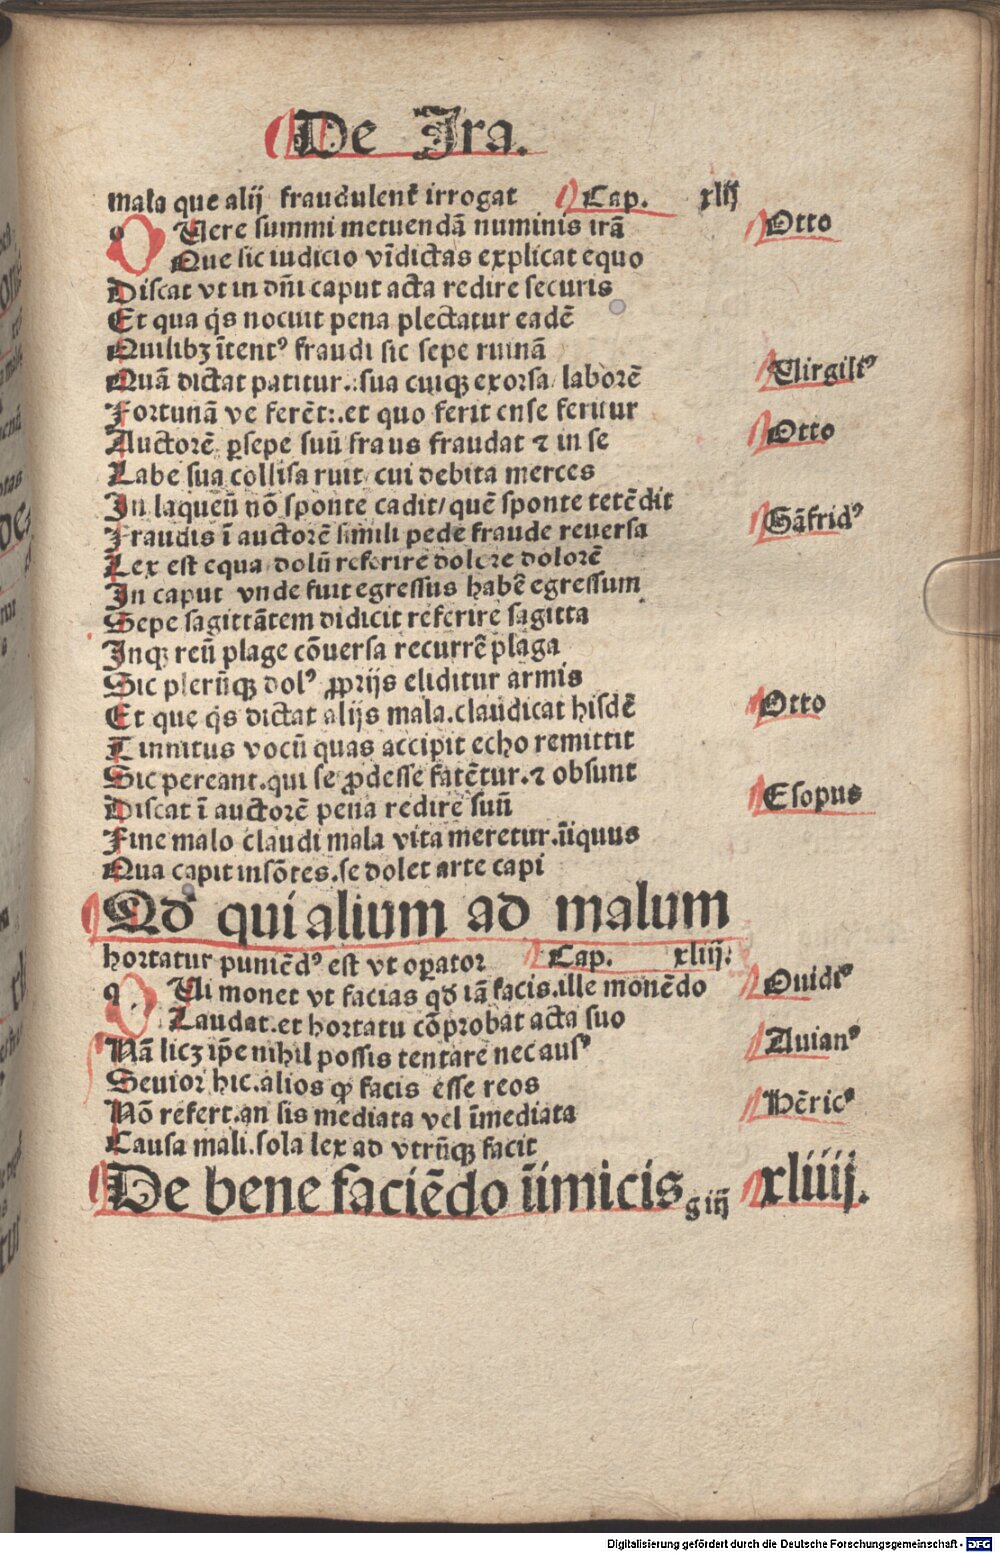 De Ira.
mala que alij fraudulent̄ irrogat Cap. xlij
q Uere summi metuendā numinis irā Otto
Que sic iudicio vīdictas explicat equo
Discat vt in dn̄i caput acta redire securis
Et qua q̇s nocuit pena plectatur eadē
Quilibꝫ ītentꝰ fraudi sic sepe ruinā
Quā dictat patitur.:sua cuiqꝫ exorsa laborē Uirgiliꝰ
Fortunā ve ferēt:.et quo ferit ense feritur
Auctorē ꝑsepe suū fraus fraudat ⁊ in se Otto
Labe sua collisa ruit cui debita merces
In laqueū nō sponte cadit/quē sponte tetēdit
Fraudis ī auctorē simili pede fraude reuersa Gāfridꝰ
Lex est equa dolū referire dolore dolorē
In caput vnde fuit egressus habē egressum
Sepe sagittātem didicit referire sagitta
Inqꝫ reū plage cōuersa recurrē plaga
Sic plerūqꝫ dolꝰ ꝓprijs eliditur armis
Et que q̇s dictat alijs mala.claudicat hisdē Otto
Tinnitus vocū quas accipit echo remittit
Sic pereant.qui se ꝓdesse fatētur.⁊ obsunt
Discat ī auctorē pena redire suū Esopus
Fine malo claudi mala vita meretur.īiquus
Qua capit insōtes.se dolet arte capi
Qđ qui alium ad malum
hortatur puniēdꝰ est vt oꝑator Cap. xliij.
q Ui monet vt facias qđ iā facis.ille monēdo Ouidiꝰ
Laudat.et hortatu cōprobat acta suo
Nā licꝫ ip̄e nihil possis tentare nec ausꝰ Auianꝰ
Seuior hic.alios ꝙ facis esse reos
Nō refert.an sis mediata vel īmediata Hēricꝰ
Causa mali.sola lex ad vtrūqꝫ facit
De bene faciēdo īimicis g iij xliiij.
Digitalisierung gefördert durch die Deutsche Forschungsgemeinschaft - DFG